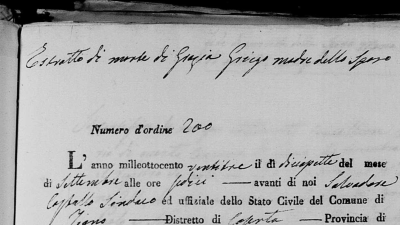 Estratto di morte di Grazia Griego madre dello Sposo
Numero d'ordine 200
L'anno milleottocento ventitre il dì diciasette del mese
di Settembre alle ore sedici — avanti di noi Salvadore
Coppallo Sindaco ed uffiziale dello Stato Civile del Comune di
— Distretto di Caserta — Provincia di